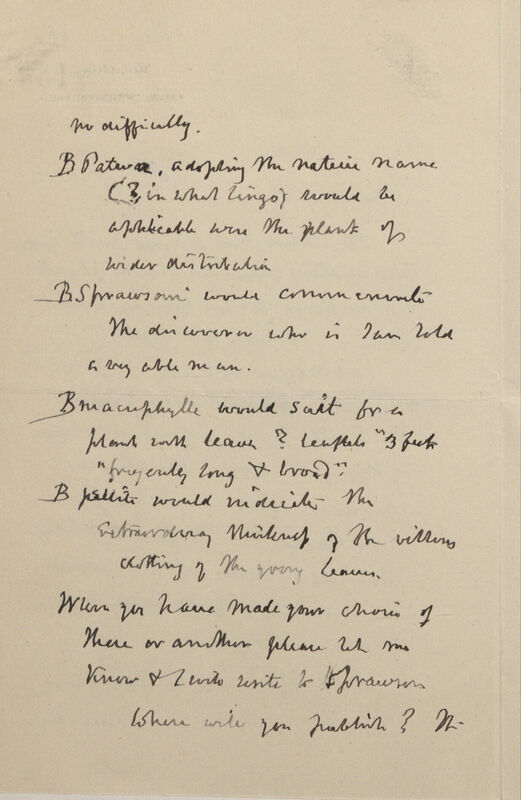 no difficulty.
B Patwa, adopting the native name
(?, in what lingo) would be
applicable were the plant of
wider distribution
B Sprawsoni would commemorate
the discoverer who is I am told
a very able man.
B macrophylla would suit for a
plant with leaves ? leaflets "3 feet
"frequently long & broad".
B pellita would indicate the
extraordinary thickness of the villous
clothing of the young leaves.
When you have made your choice of
these or another please let me
know & I will write to Sprawson
Where will you publish? The